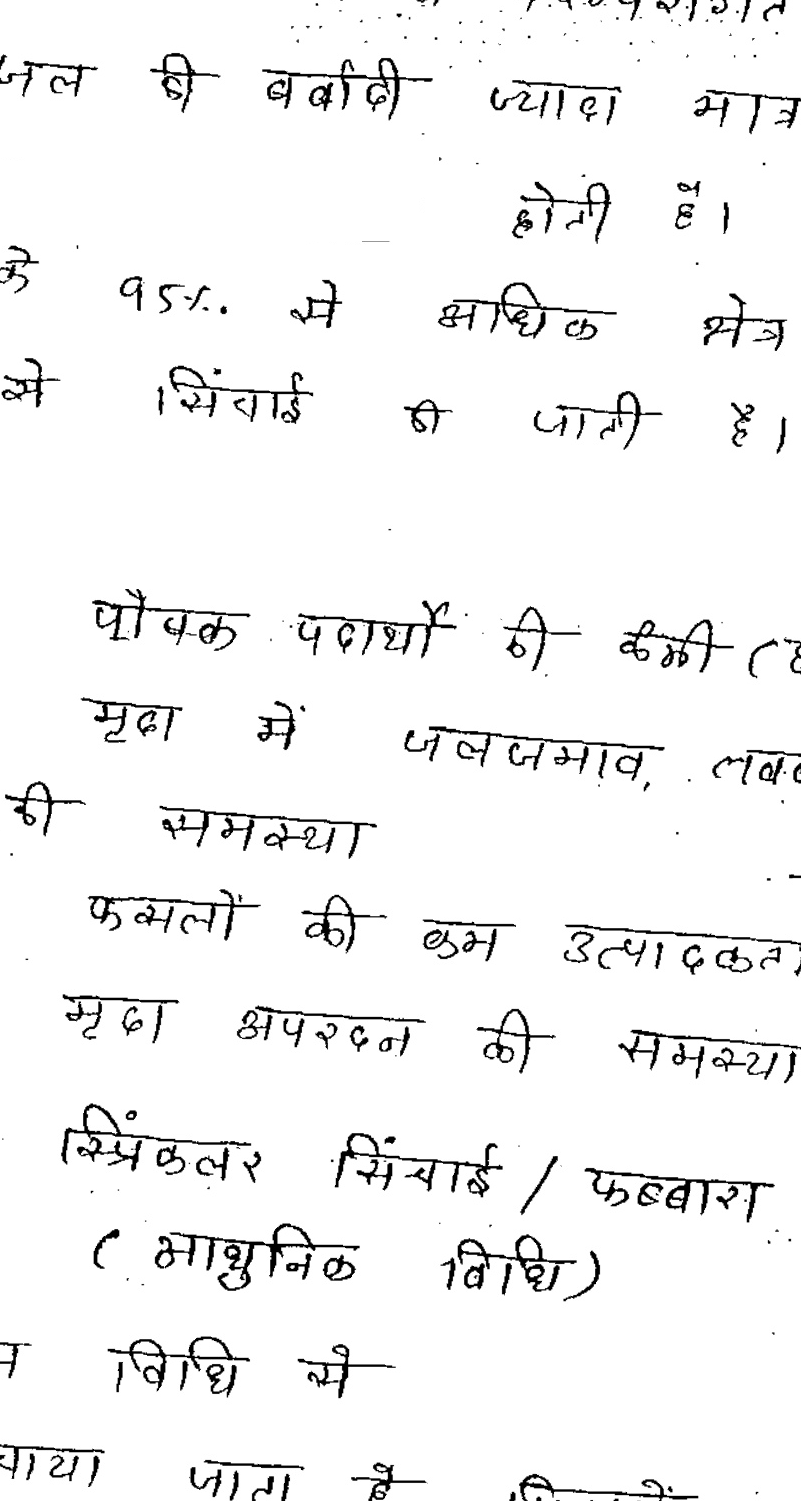 जल की बर्बादी ज्यादा
होती है।
के 95% से अधिक क्षेत्र
से सिंचाई की जाती है।
पौषक पदार्थों की कमी (
मृदा में जलजमाव,
की समस्या
फसलों की कम उत्पादकता
मृदा अपरदन की समस्या
स्प्रिंकलर सिंचाई / फब्बारा
(आधुनिक विधि)
विधि से
जाता है